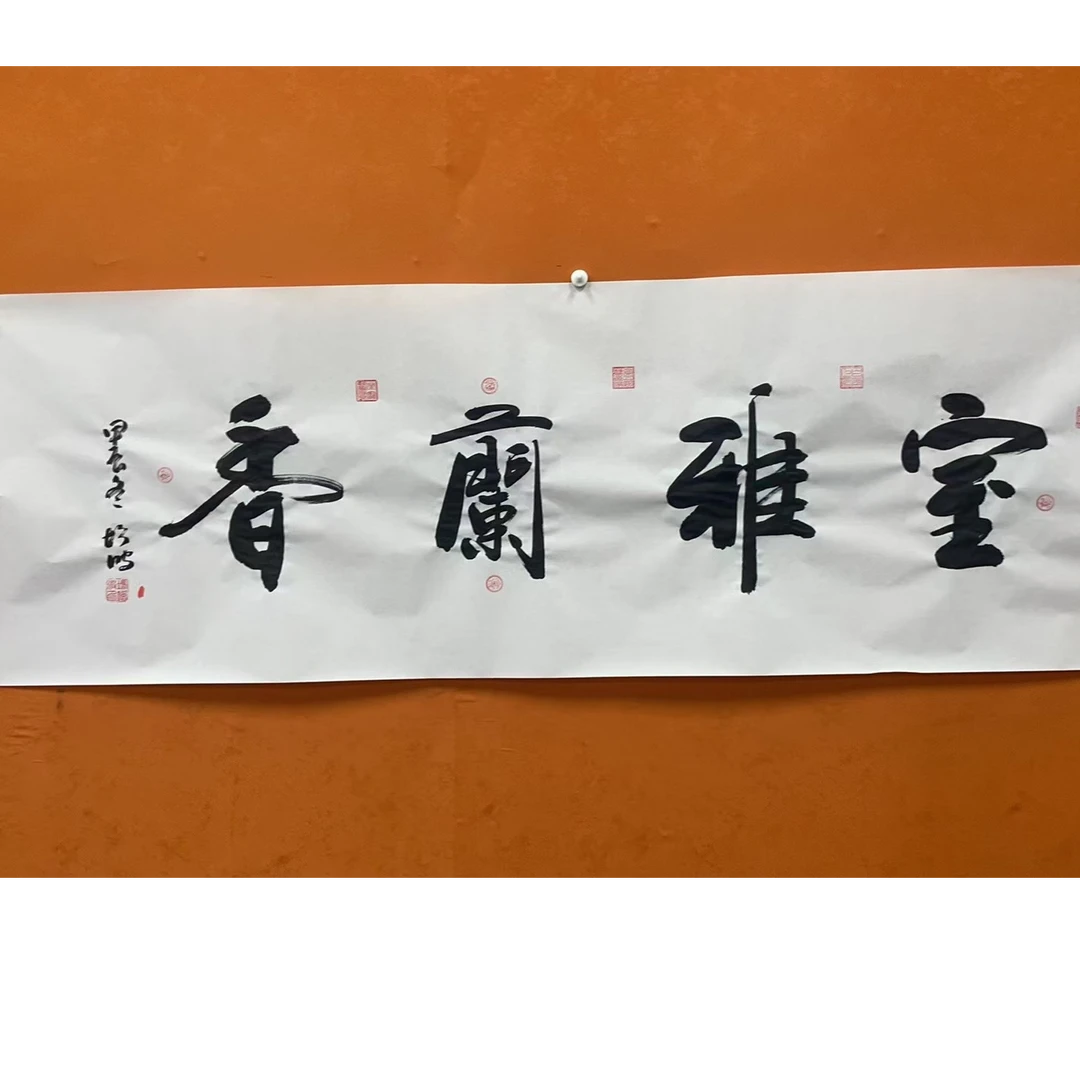 室雅蘭香
甲辰冬